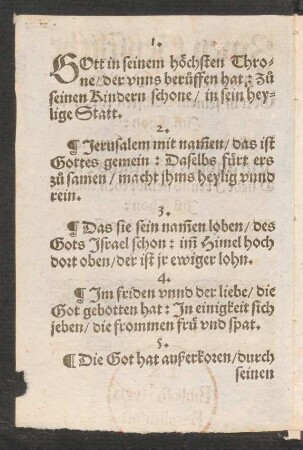 1.
GOtt in seinem höchsten Thro-
ne/der vnns berüffen hat: Zů
seinen Kindern schone/ in sein hey-
lige Statt.
2.
¶ Jerusalem mit nam̃en/ das ist
Gottes gemein: Daselbs fürt ers
zů samen/ macht jhms heylig vnnd
rein.
3.
¶ Das sie sein nam̃en loben/ des
Gots Israel schon: im̃ Himel hoch
dort oben/der ist jr ewiger lohn.
4.
¶ Im friden vnnd der liebe/ die
Got gebotten hat: In einigkeit sich
jeben/ die frommen frů vnd spat.
5.
¶ Die Got hat außerkoren/durch
seinen